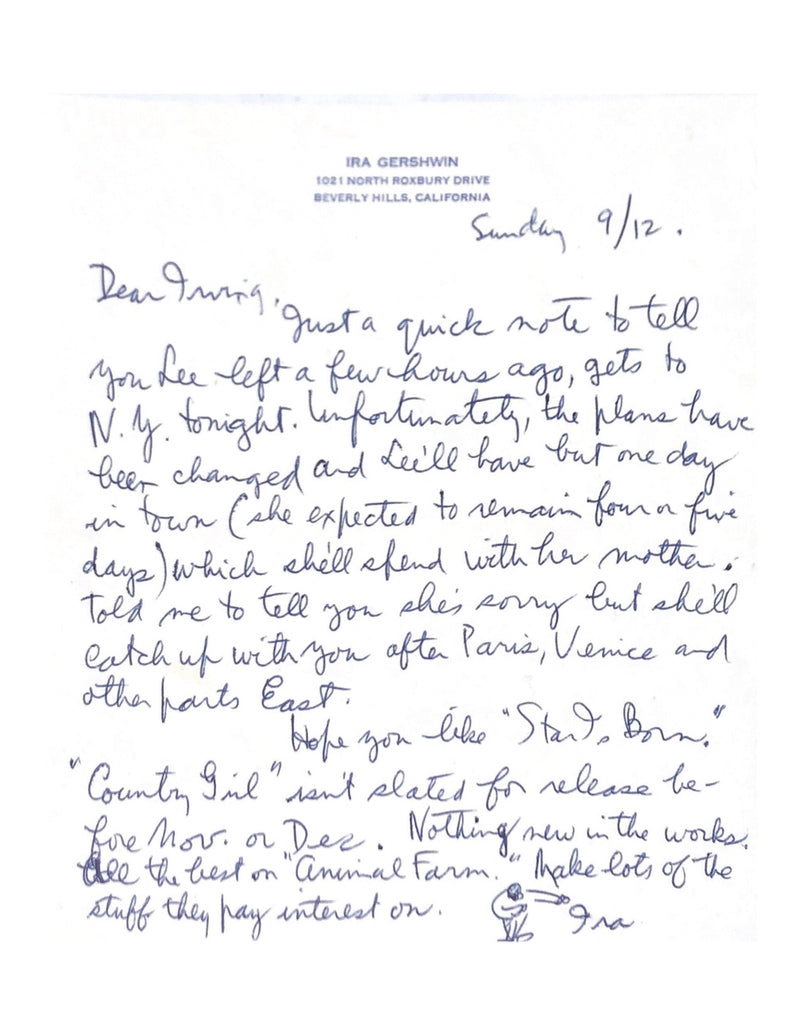 IRA GERSHWIN
1021 NORTH ROXBURY DRIVE
BEVERLY HILLS, CALIFORNIA
Sunday 9/12.
Dear Irving,
Just a quick note to tell
you Lee left a few hours ago, gets to
N.Y. tonight. Unfortunately, the plans have
been changed and Lee'll have but one day
in town (she expected to remain four or five
days) which she'll spend with her mother.
Told me to tell you she's sorry but she'll
catch up with you after Paris, Venice and
other parts East.
Hope you like "Star Is Born."
"Country Girl" isn't slated for release be-
fore Nov. or Dec. Nothing new in the works.
All the best on "Animal Farm." Make lots of the
stuff they pay interest on.
Ira